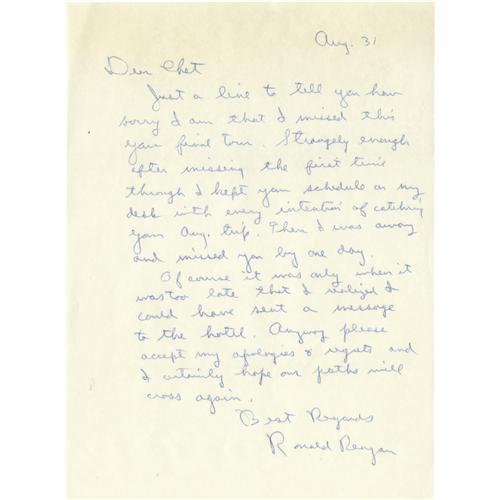 Aug. 31
Dear Chet
Just a line to tell you how
sorry I am that I missed this
your final tour. Strangely enough
after missing the first time
through I kept your schedule on my
desk with every intention of catching
your Aug. trip. Then I was away
and missed you by one day.
Of course it was only when it
was too late that I realized I
could have sent a message
to the hotel. Anyway please
accept my apologies & regrets and
I certainly hope our paths will
cross again.
Best Regards
Ronald Reagan